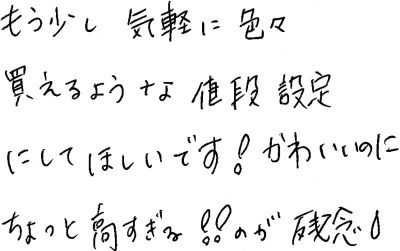 もう少し 気軽に 色々
買えるような 値段 設定
にしてほしいです! かわいいのに
ちょっと高すぎる!!のが 残念!